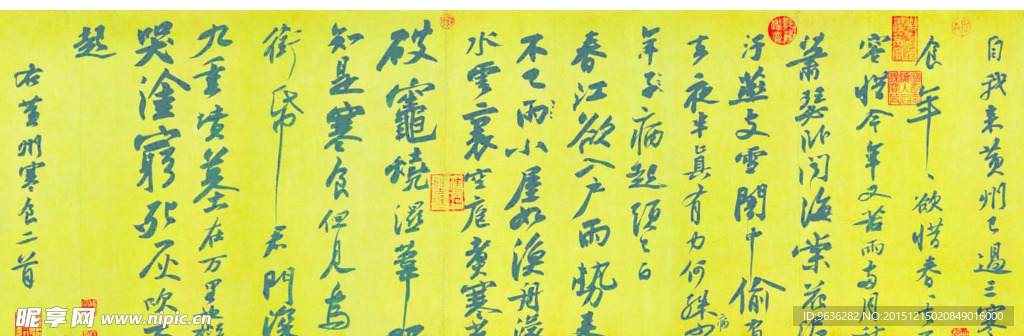 自我來黃州已過三寒
食年〻欲惜春
容惜今年又苦雨兩月秋
蕭瑟卧聞海棠花泥
汙燕支雪闇中偷負
去夜半真有力何殊少
年子病起頭已白
春江欲入戶雨勢來
不已雨小屋如漁舟濛
水雲裏空庖煮寒菜
破竈燒濕葦那
知是寒食但見烏
銜帋君門深
九重墳墓在万里也擬
哭塗窮死灰吹
起
右黃州寒食二首
昵享网 www.nipic.cn
ID:9636282 NO:20151215020849016000